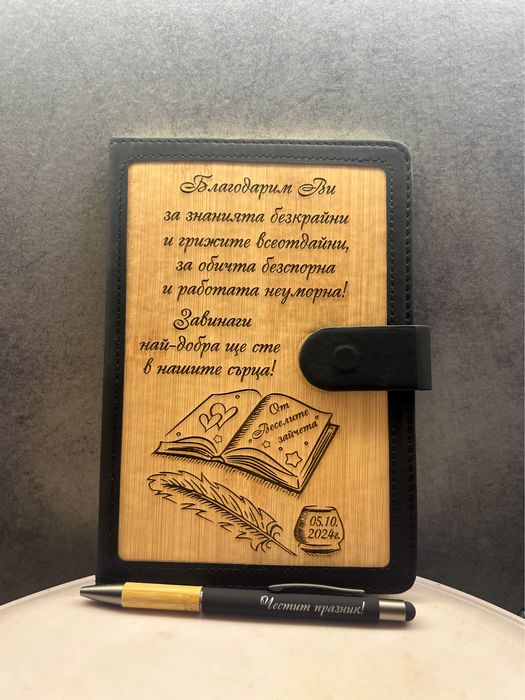 Благодарим Ви
за знанията безкрайни
и грижите всеотдайни,
за обичта безспорна
и работата неуморна!
Завинаги
най-добра ще сте
в нашите сърца!
От
"Веселите
зайчета"
05.10.
2024г.
Честит празник!